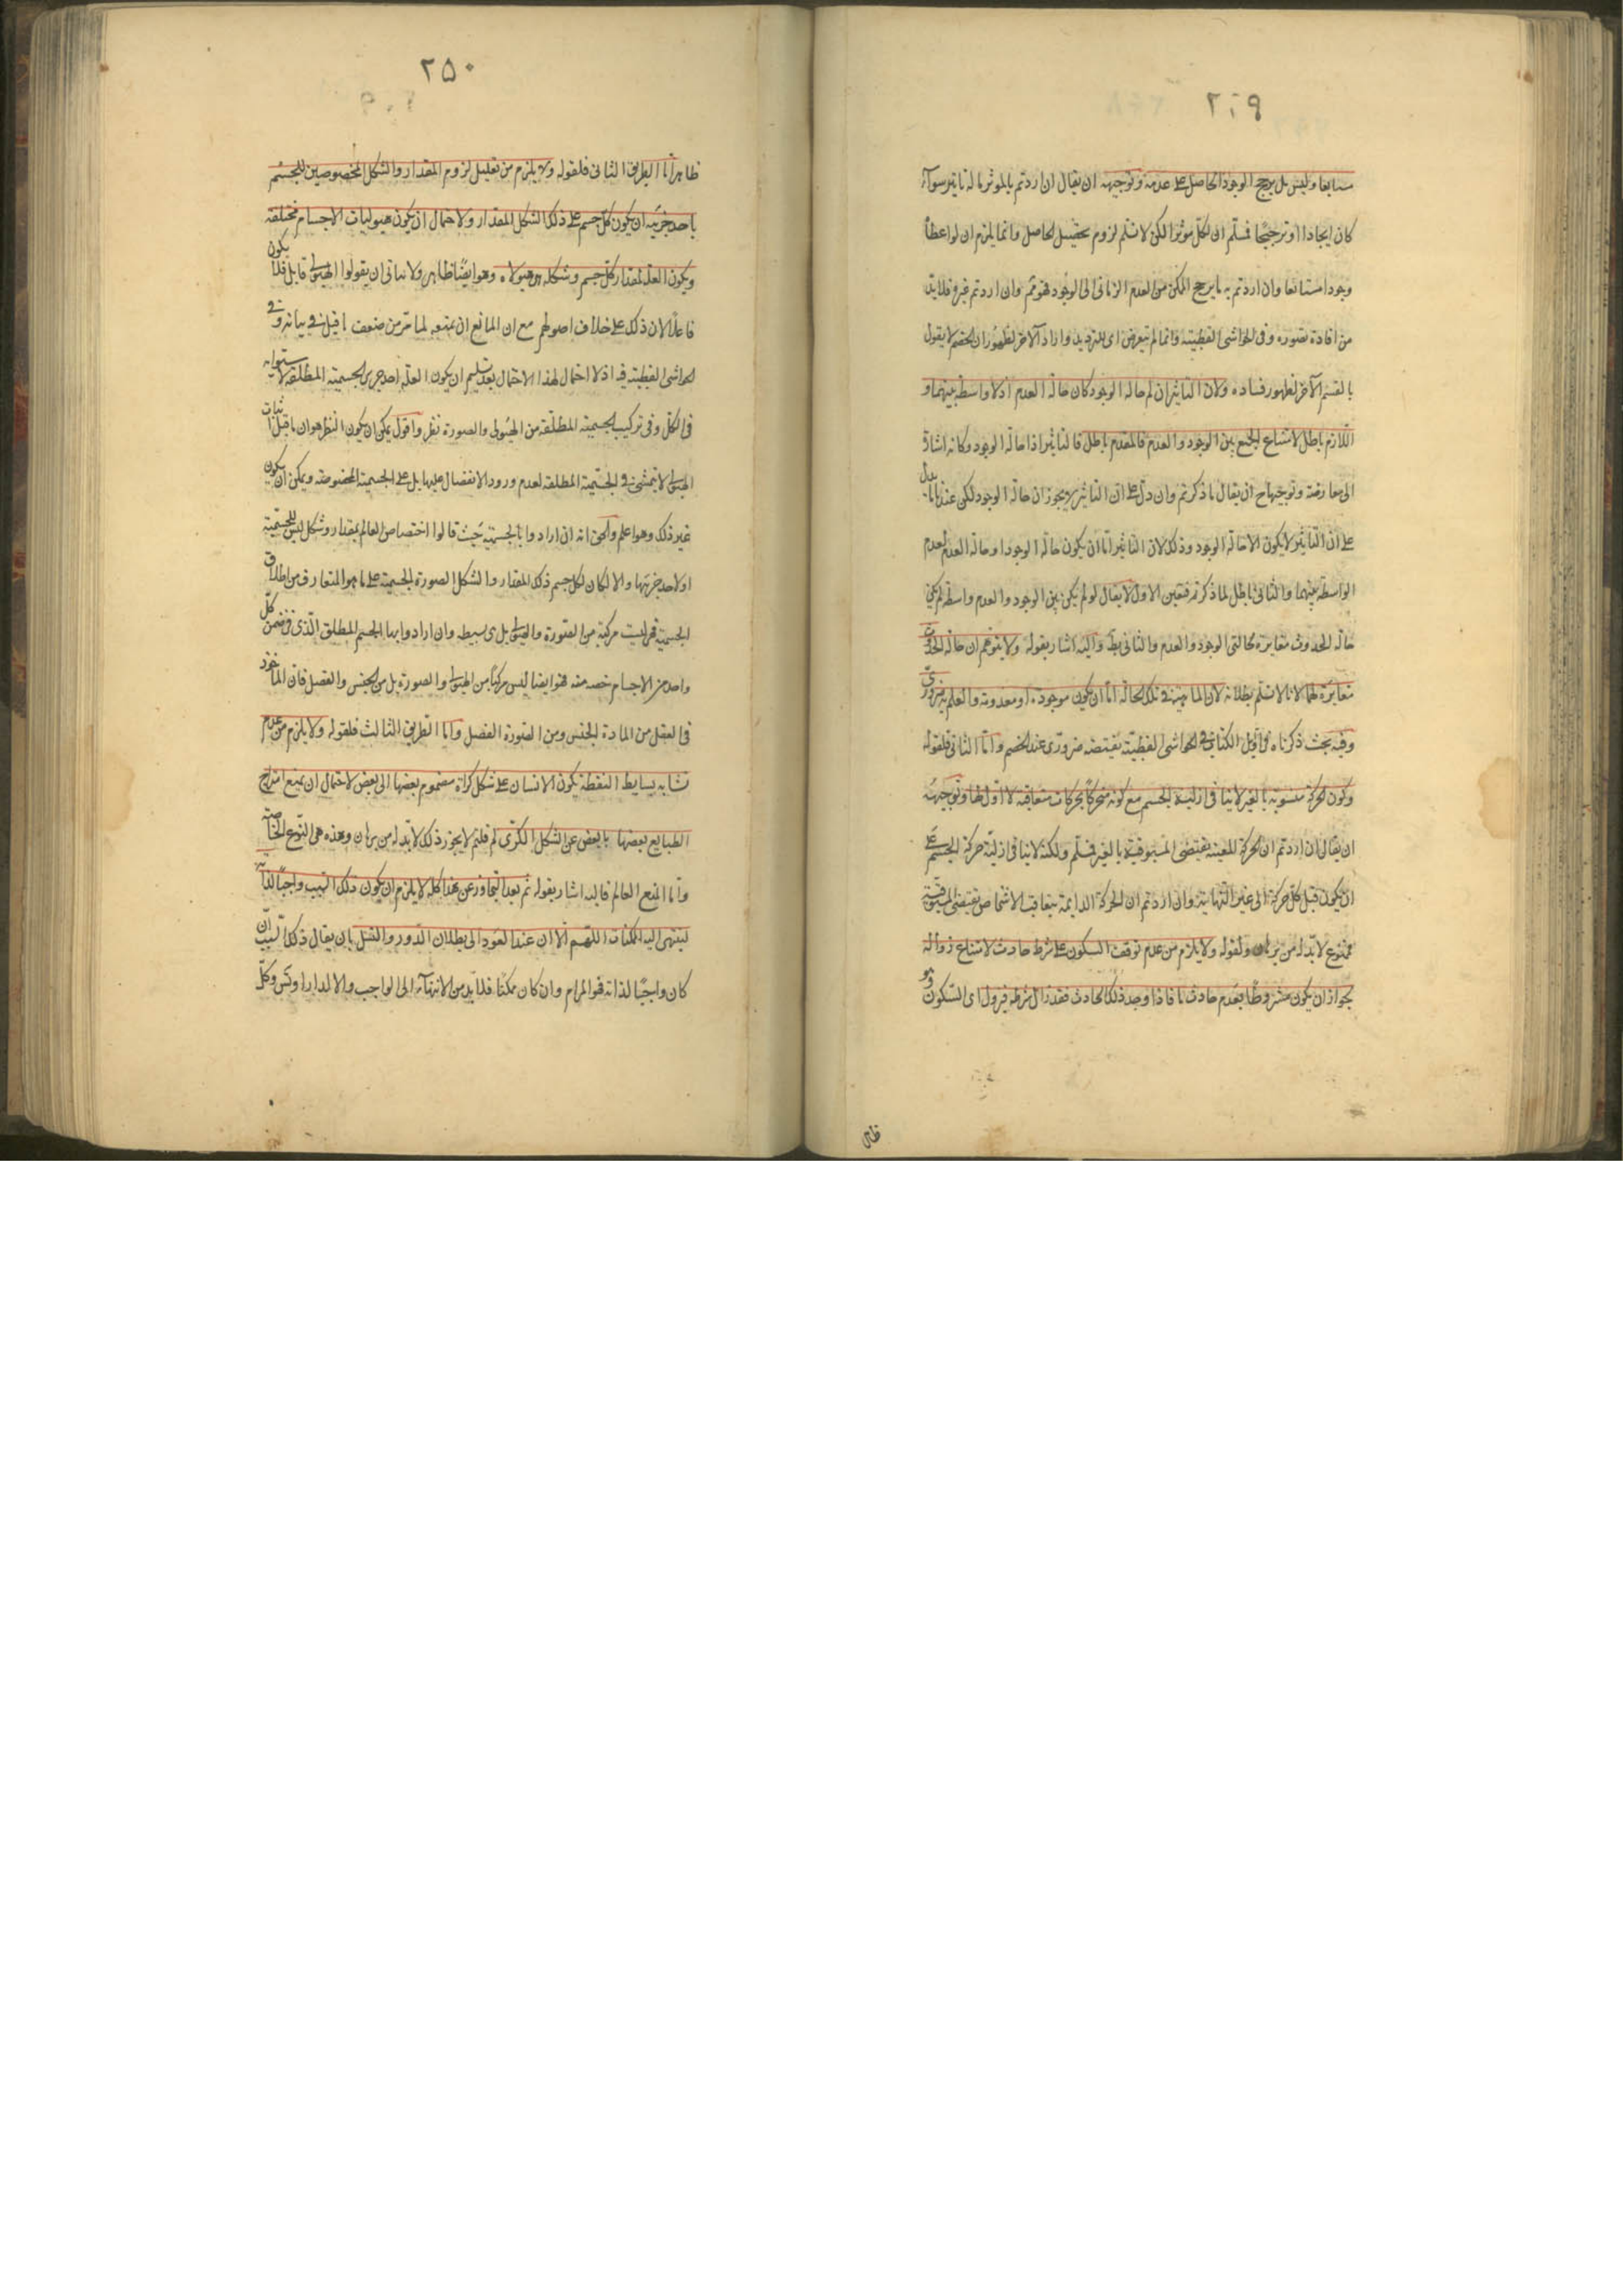 ٢٤٩
سابقا وليس بل يرجح الوجود الحاصل على عدمه وتوجيهه ان يقال ان اردتم بالموثر ما له تاثير سوآء
كان ايجادا او ترجيحا فسلم ان لكل موثرا لكن لا نسلم لزوم تحصيل الحاصل وانما يلزم ان لو اعطاه
وجودا مستانفا وان اردتم به ما يرجح الممكن من العدم الزمانى الى الوجود فهو ثم وان اردتم غيره فلا بد
من افادة تصوره وفى الحواشى القطبية وانما لم يتعرض اى للترديد واراد الآخر لظهور ان الخصم لا يقول
بالقسم الآخر لظهور فساده ولان التاثير ان لم حالة الوجود كان حالة العدم اذ لا واسطة بينهما و
اللازم باطل لامتناع الجمع بين الوجود والعدم فالمقدم باطل فالتاثير اذا حالة الوجود وكانه اشارة
الى معارضة وتوجيهها ح ان يقال ما ذكرتم وان دل على ان التاثير لا يجوز ان حالة الوجود لكن عندنا ما يدل
على ان التاثير لا يكون الا حالة الوجود وذلك لان التاثير اما ان يكون حالة الوجود او حالة العدم لعدم
الواسطة بينهما والثانى باطل لما ذكرتم فتعين الاول لا يقال لو لم يكن بين الوجود والعدم واسطة لم يكن
حالة الحدوث مغايرة لحالتى الوجود والعدم والثانى بط واليه اشار بقوله ولا يتوهم ان حالة الحدوث
مغايرة لهما لانا لا نسلم بطلانه لان الماهية فى تلك الحالة اما ان يكون موجودة او معدومة والعلم به ضرورى
وفيه بحث ذكرناه فى اويل الكتاب فى الحواشى القطبية يقتضه ضرورى عند الخصم واما الثانى فلقوله
وكون الحركة مسبوقة بالغير لا ينافى ازلية الجسم مع كونه متحركا بحركات متعاقبة لا اول لها وتوجيهه
ان يقال ان اردتم ان الحركة المعينة يقتضى المسبوقية بالغير فسلم ولكنه لا ينافى ازلية حركة الجسم على
ان يكون قبل كل حركة الى غير النهاية وان اردتم ان الحركة الدايمة بتعاقب الاشخاص يقتضى المسبوقية
ممنوع لا بد له من برهان ولقوله ولا يلزم من عدم توقف السكون على شرط حادث لامتناع زواله
لجواز ان يكون مشروطا بعدم حادث ما فاذا وجد ذلك الحادث فقد زال شرطه فيزول اى السكون وهو
ظاهر
٢٥٠
ظاهر اما الطريق الثانى فلقوله ولا يلزم من تعليل لزوم المقدار والشكل المخصوصين للجسم
باحد جزئيه ان يكون كل جسم على ذلك الشكل المقدار ولاحتمال ان يكون هيوليات الاجسام مختلفة
ويكون العلة لمقدار كل جسم وشكله هى هيولاه وهو ايضا ظاهر ولا يتاتى ان يقولوا الهيولى قابل فلا يكون
فاعلا لان ذلك على خلاف اصولهم مع ان المانع ان يمنعه لما مر من ضعف ما قيل فى بيانه وفى
الحواشى القطبية فيه اذ لا احتمال لهذا الاحتمال بعد تسليم ان يكون العلة احد جزئى الجسمية المطلقة لاستوايه
فى الكل وفى تركيب الجسمية المطلقة من الهيولى والصورة نظر واقول يمكن ان يكون النظر هو ان ما قيل فى اثبات
الهيولى لا يتمشى فى الجسمية المطلقة لعدم ورود الانفصال عليها بل على الجسمية المخصوصة ويمكن ان يكون
غير ذلك وهو اعلم والحق انه ان ارادوا بالجسمية حيث قالوا اختصاص العالم بمقدار وشكل ليس للجسمية
او لاحد جزئيها والا لكان لكل جسم ذلك المقدار والشكل الصورة الجسمية على ما هو المتعارف من اطلاق
الجسمية فهى ليست مركبة من الصورة والهيولى بل هى بسيطة وان ارادوا بها الجسم المطلق الذى فى ضمن كل
واحد من الاجسام حصة منه فهو ايضا ليس مركبا من الهيولى والصورة بل من الجنس والفصل فان الماخوذ
فى العقل من المادة الجنس ومن الصورة الفصل واما الطريق الثالث فلقوله ولا يلزم من عدم
تشابه بسايط النطفة يكون الانسان على شكل كراة مضموم بعضها الى بعض لاحتمال ان يمنع امتزاج
الطبايع بعضها بالبعض عن الشكل الكرى لم قلتم لا يجوز ذلك لا بد له من برهان وهذه هى النوع الخاصة
واما المنع العام فاليه اشار بقوله ثم بعد التجاوز عن هذا كله لا يلزم ان يكون ذلك السبب واجبا لذاته
لينتهى اليه الممكنات اللهم الا ان عند العود الى بطلان الدور والتسل بان يقال ذلك السبب ان
كان واجبا لذاته فهو المرام وان كان ممكنا فلا بد من الانتهآء الى الواجب والا لدار او تس وكل